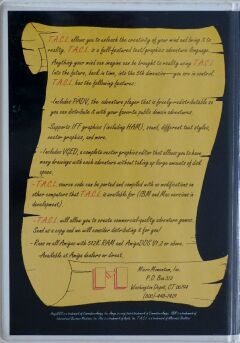 T.A.C.L. allows you to unleash the creativity of your mind and bring it to
reality. T.A.C.L. is a full-featured text/graphics adventure language.
Anything your mind can imagine can be brought to reality using T.A.C.L.
Into the future, back in time, into the 5th dimension—you are in control.
T.A.C.L. has the following features:
-Includes PADV, the adventure player that is freely-redistributable so
you can distribute it with your favorite public domain adventures.
-Supports IFF graphics (including HAM), sound, different text styles,
vector graphics, and more.
-Includes VGED, a complete vector graphics editor that allows you to have
many drawings with each adventure without taking up large amounts of disk
space.
-T.A.C.L. source code can be ported and compiled with no modifications on
other computers that T.A.C.L. is available for (IBM and Mac versions in
development).
-T.A.C.L. will allow you to create commercial-quality adventure games.
Send us a copy and we will consider distributing it for you!
-Runs on all Amigas with 512K RAM and AmigaDOS V1.2 or above.
-Available at Amiga dealers or direct.
Micro Momentum, Inc.
P.O. Box 372
Washington Depot, CT 06794